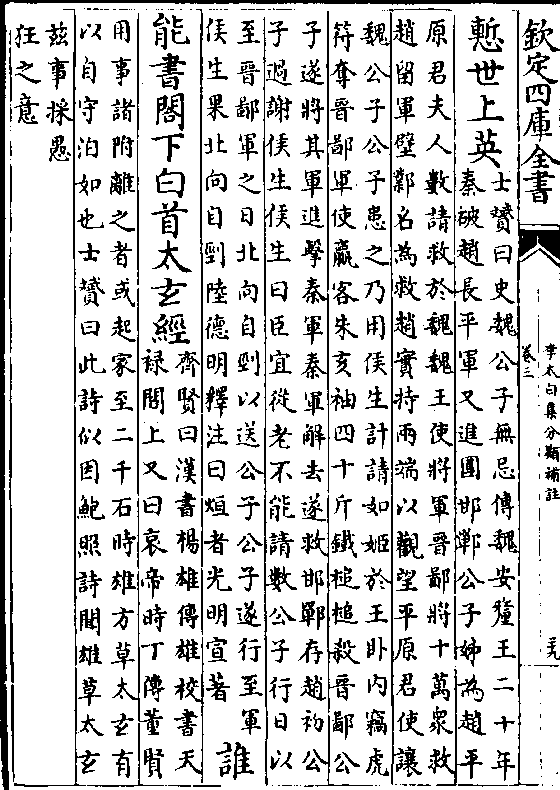 欽定四庫全書
李太白集分類補註
卷三
慙世上英士贇曰史魏公子無忌傳魏安釐王二十年
秦破趙長平軍又進圍邯鄲公子姊為趙平
原君夫人數請救於魏魏王使將軍晉鄙將十萬衆救
趙留軍壁鄴名為救趙實持兩端以觀望平原君使讓
魏公子公子患之乃用侯生計請如姬於王卧内竊虎
符奪晉鄙軍使羸客朱亥袖四十斤鐵槌槌殺晉鄙公
子遂將其軍進擊秦軍秦軍解去遂救邯鄲存趙初公
子過謝侯生侯生曰臣宜從老不能請數公子行日以
至晉鄙軍之日北向自剄以送公子公子遂行至軍
侯生果北向自剄陸德明釋注曰烜者光明宣著
誰
能書閣下白首太玄經齊賢曰漢書楊雄傳雄校書天
禄閣上又曰哀帝時丁傅董賢
用事諸附離之者或起家至二千石時雄方草太玄有
以自守泊如也士贇曰此詩似因鮑照詩聞雄草太玄
兹事採愚
狂之意